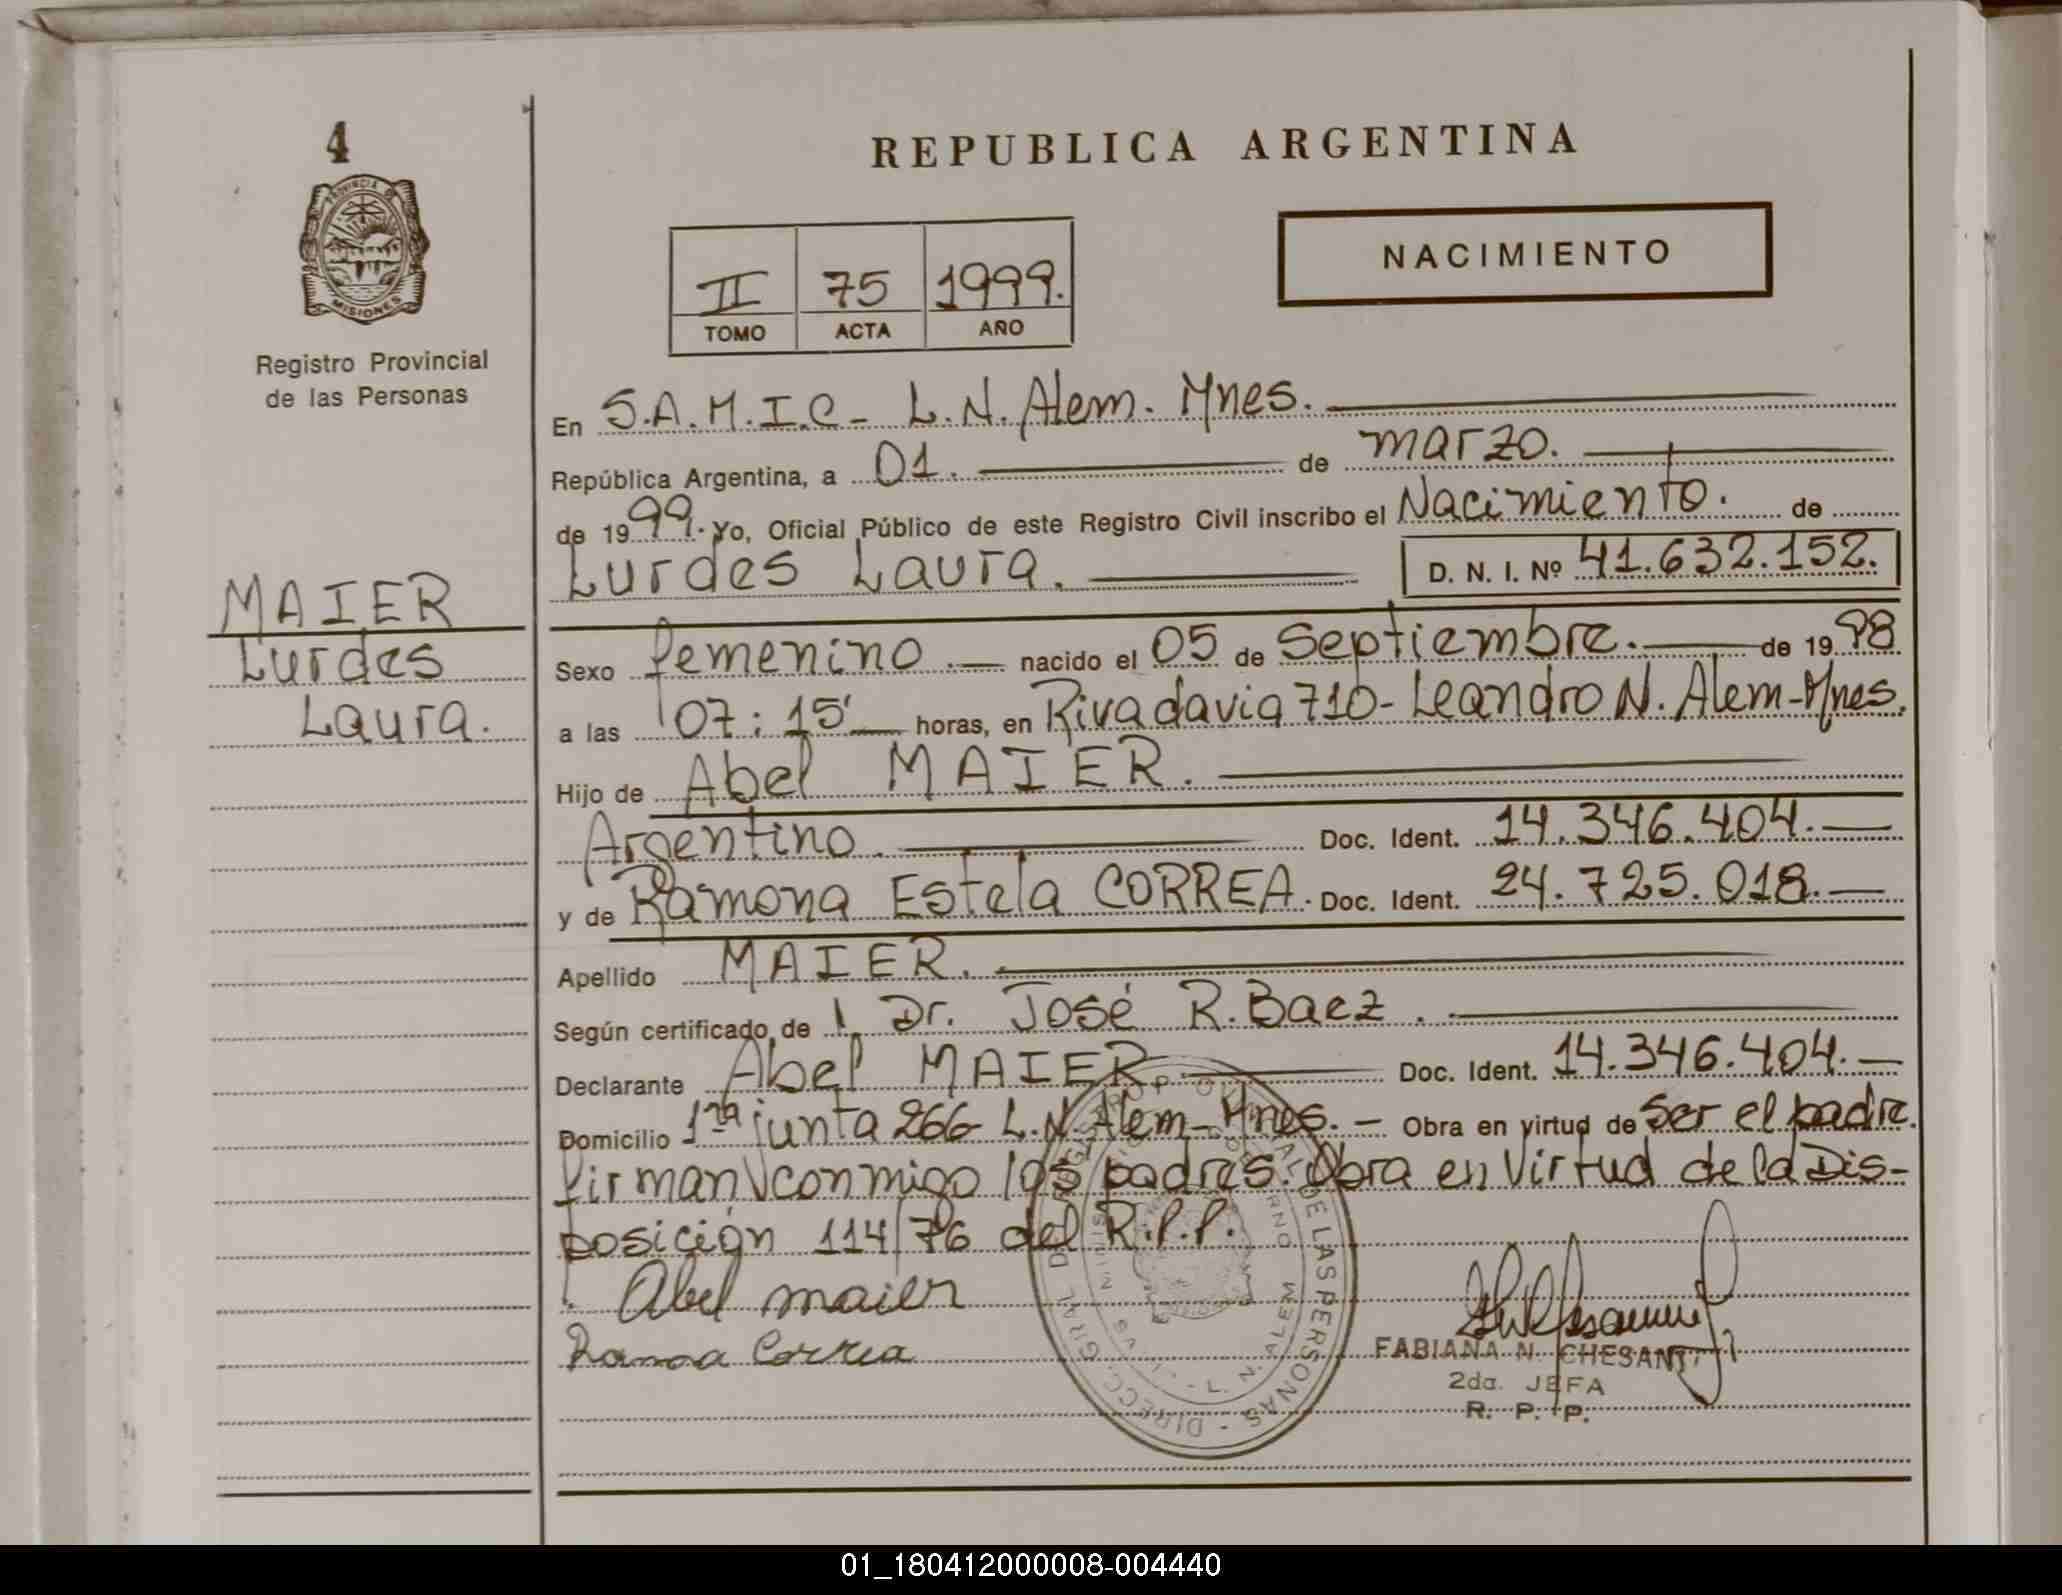 4
PROVINCIA DE
MISIONES
Registro Provincial
de las Personas
MAIER
Lurdes
Laura.
REPUBLICA ARGENTINA
NACIMIENTO
II 75 1999.
TOMO ACTA AÑO
En S.A.M.I.C - L.N. Alem. Mnes.
República Argentina, a 01. de marzo.
de 1999. Yo, Oficial Público de este Registro Civil inscribo el Nacimiento. de
Lurdes Laura. D. N. I. Nº 41.632.152.
Sexo femenino. nacido el 05 de Septiembre. de 1998
a las 07:15' horas, en Rivadavia 710 - Leandro N. Alem - Mnes.
Hijo de Abel MAIER.
Argentino. Doc. Ident. 14.346.404.
y de Ramona Estela CORREA. Doc. Ident. 24.725.018.
Apellido MAIER.
Según certificado de Dr. José R. Baez.
Declarante Abel MAIER Doc. Ident. 14.346.404.
Domicilio 1ra junta 266 - L.N. Alem - Mnes. - Obra en virtud de Ser el padre.
firman conmigo los padres. Obra en Virtud de la Dis-
posición 114/76 del R.P.P.
Abel maier
Ramona Correa
FABIANA N. CHESANI
2da. JEFA
R. P. P.
DE LAS PERSONAS - DIRECC. GRAL.
L. N. ALEM
01_180412000008-004440